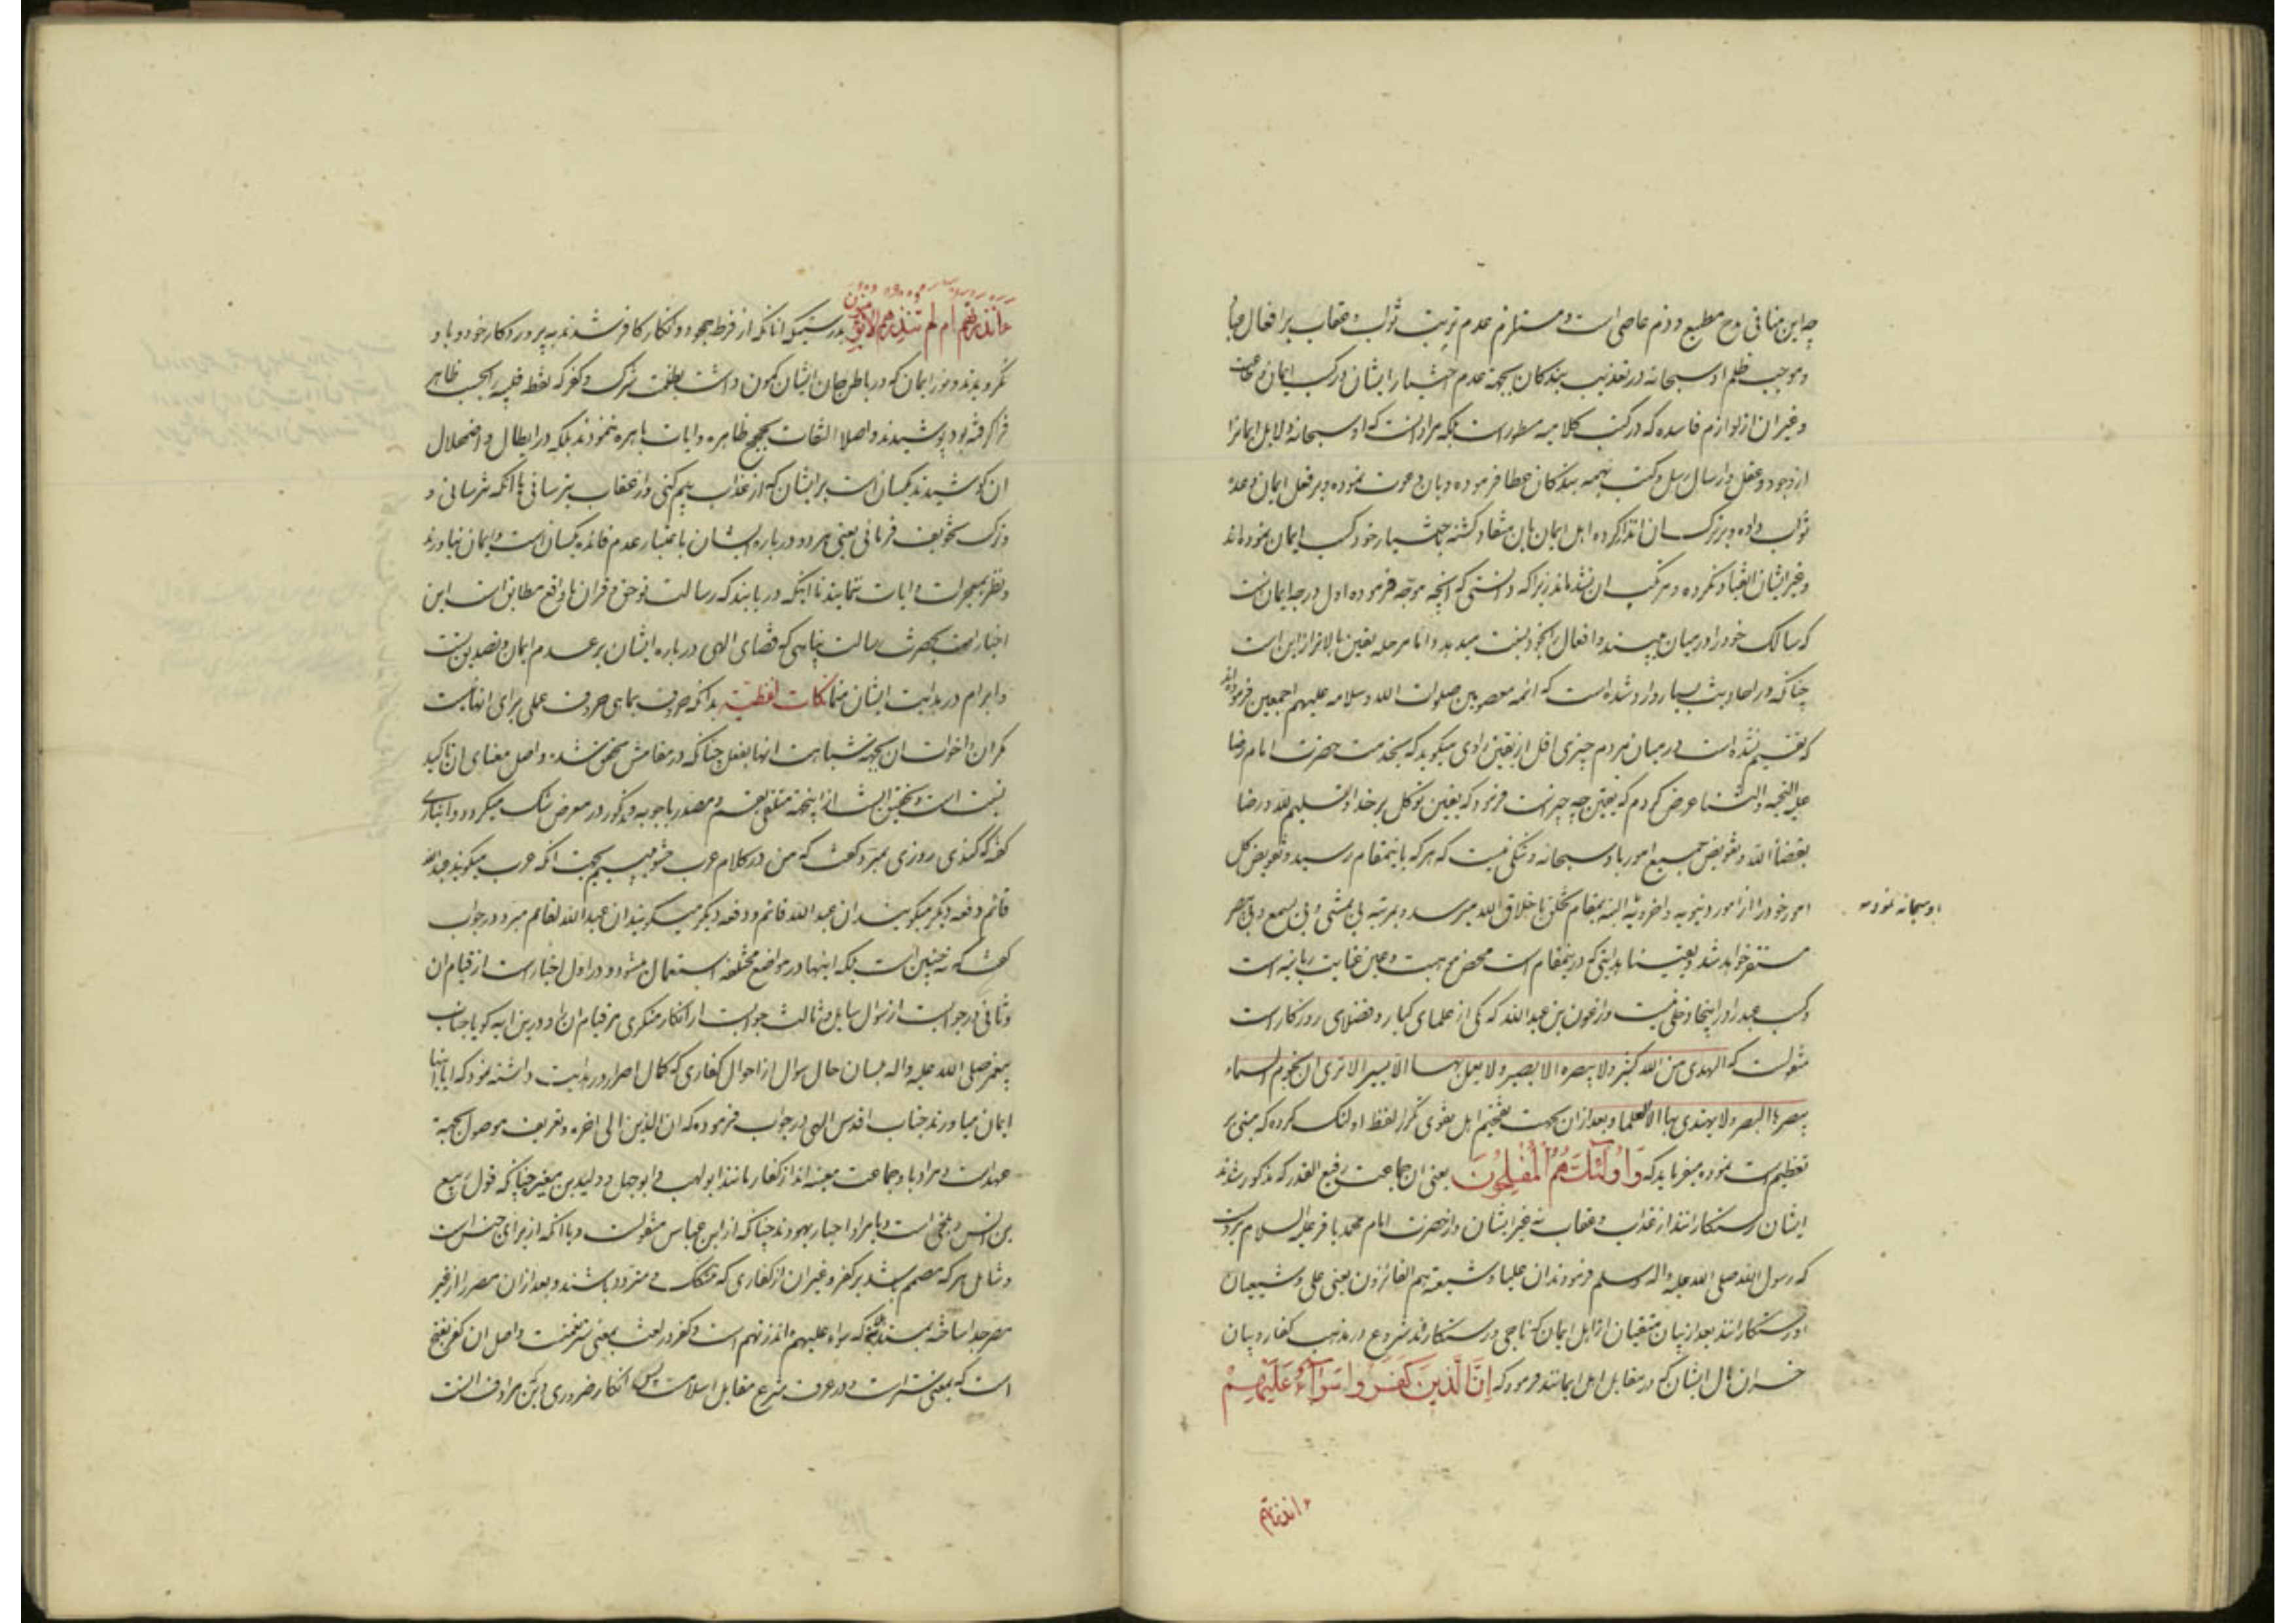 چه این منافی مدح مطیع و ذم عاصی است و مستلزم عدم ترتیب ثواب و عقاب بر افعال
و موجب ظلم او سبحانه در تعذیب بندکان بجهة عدم اختیار ایشان در کسب ایمان
و غیر ان از لوازم فاسده که در کتب کلامیه مسطور است بلکه مراد انست که او سبحانه دلایل ایمانرا
از وجود و عقل و ارسال رسل و کتب بهمه بندکان عطا فرموده و بان دعوت نموده و بر فعل ایمان وعده
ثواب داده و بر ترک ان انذار کرده اهل ایمان بان منقاد کشته باختیار خود کسب ایمان نموده‌اند
و غیر ایشان انقیاد نکرده و مرتکب ان نشده‌اند زیرا که دانستی که انچه موجه فرموده اول درجه ایمان است
که سالک خود را در میان می‌بیند و افعال را بخود نسبت میدهد و اما مرحله یقین بالاتر از این است
چنانکه در احادیث بسیار وارد شده است که ائمه معصومین صلوات الله و سلامه علیهم اجمعین فرموده‌اند
که تقسیم نشده است در میان مردم چیزی اقل از یقین راوی میکوید که بخدمت حضرت امام رضا
علیه التحیه و الثنا عرض کردم که یقین چه چیز است فرمود که یقین توکل بر خدا و تسلیم لله و رضا
بقضاء الله و تفویض جمیع امور باو سبحانه و شکی نیست که هر که باینمقام رسید و تفویض کل
امور خود را از امور دنیویه و اخرویه البته بمقام تخلق باخلاق الله میرسد و بمرتبه بی یمشی و بی یسمع و بی یبصر
باو سبحانه نموده
مستقر خواهد شد و یقینا هدایتی که در ینمقام است محض موهبت و عین عنایت ربانیه است
و کسب عبد را در اینجا دخلی نیست و از عون بن عبد الله که یکی از علمای کبار و فضلای روزکار است
منقولست که الهدی من الله کثیر و لا یبصره الا بصیر و لا یعمل بها الا یسیر الا تری ان نجوم السماء
یبصرها البصر و لا یهتدی بها الا العلما و بعد از ان بجهت تفخیم اهل تقوی تکرار لفظ اولئک کرده که مبنی بر
تعظیم است نموده میفرماید که وَاُولٰئِكَ هُمُ الْمُفْلِحُونَ یعنی ان جماعت رفیع القدر که مذکور شدند
ایشان رستکارانند از عذاب و عقاب نه غیر ایشان و از حضرت امام محمد باقر علیه السلام مرویست
که رسول الله صلی الله علیه و اله و سلم فرمودند ان علیا و شیعته هم الفائزون یعنی علی و شیعیان
او رستکارانند بعد از بیان متقیان از اهل ایمان که ناجی و رستکارند شروع در مذهب کفار و بیان
خسران مال ایشان که در مقابل اهل ایمانند فرمود که اِنَّ الَّذِينَ كَفَرُوا سَوَآءٌ عَلَيْهِمْ
ءانذرتهم
ءَاَنْذَرْتَهُمْ اَمْ لَمْ تُنْذِرْهُمْ لَا يُؤْمِنُونَ بدرستیکه انانکه از فرط جحود و انکار کافر شدند به پروردکار خود و باو
نکرویدند و نور ایمان که در باطن جان ایشان کمون داشت بظلمت شرک و کفر که لفظ قلبیه را بحسب ظاهر
فرا کرفته بود پوشیدند و اصلا التفات بحجج ظاهره و ایات باهره ننمودند بلکه در ابطال و اضمحلال
ان کوشیدند یکسان است بر ایشان که از عذاب بیم کنی و از عقاب بترسانی یا انکه نترسانی و
و ترک تخویف فرمائی یعنی هر دو در باره ایشان باعتبار عدم فائده یکسان است و ایمان نیاورند
و نظر بمعجزات و ایات ننمایند تا اینکه دریابند که رسالت تو حق و قران با واقع مطابق است این
اخبار است بحضرت رسالت پناهی که قضای الهی در باره ایشان بر عدم ایمان و تصدیق است
و ابرام در هدایت ایشان منما نکات لفظیة بدانکه حروف بما هی حروف عملی برای انها نیست
مکر ان و اخوات ان بجهة شباهت انها بفعل چنانکه در مقامش محقق شده و اصل معنای ان تاکید
نسبت است و تحقیق انست از اینجهة متلقی بقسم و مصدر باجوبه و مذکور در معرض شک میکردد و انباری
کفته که کندی روزی بمبرد کفت که من در کلام عرب حشو می‌بینم بجهت انکه عرب میکویند عبد الله
قائم و دفعه دیکر میکویند ان عبد الله قائم و دفعه دیکر میکویند ان عبد الله لقائم مبرد در جواب
کفت که نه چنین است بلکه اینها در مواضع مختلفه استعمال میشود و در اول اخبار است از قیام ان
و ثانی در جوابست از سؤال سایل و ثالث جوابست از انکار منکری مر قیام ان را و در این ایه کویا جناب
پیغمبر صلی الله علیه و اله بلسان حال سؤال از احوال کفاری که کمال اصرار در هدایت داشته نمود که ایا اینها
ایمان میاورند جناب اقدس الهی در جواب فرموده که ان الذین الی اخره و تعریف موصول بجهة
عهد است و مراد باو جماعت معینه‌اند از کفار مانند ابو لهب و ابو جهل و ولید بن مغیره چنانکه قول ربیع
بن انس و بلخی است و یا مراد احبار یهودند چنانکه از ابن عباس منقولست و یا انکه از برای جنس است
و شامل هر که مصمم باشد بر کفر و غیر ان از کفاری که متشکک و متردد باشند و بعد از ان مصر را از غیر
مصر جدا ساخته که سواء علیهم ءانذرتهم است و کفر در لغت بمعنی ستر نعمت و اصل ان کفر بفتح
است که بمعنی ستر است و در عرف شرع مقابل اسلامست پس انکار ضروری دین مرادف انست